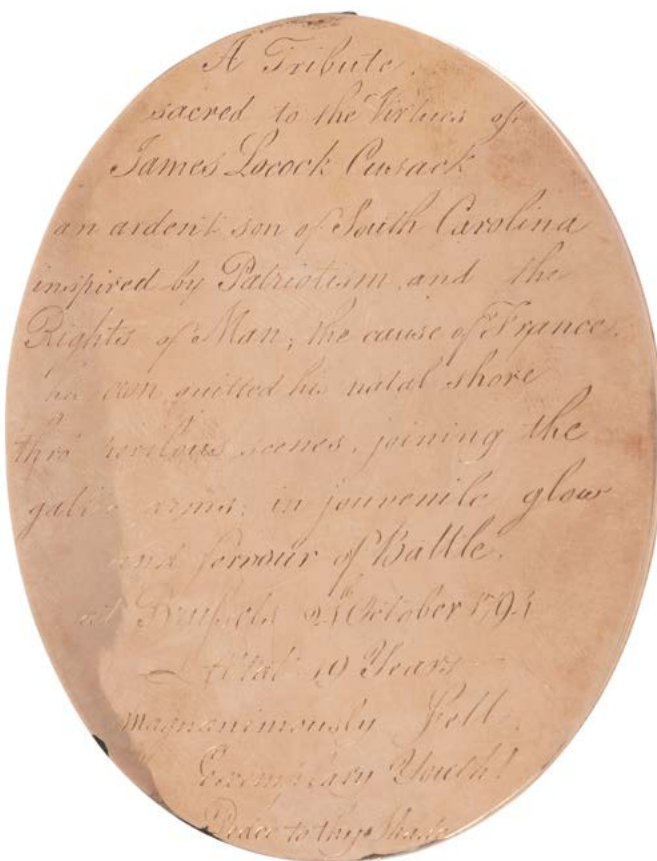 A Tribute,
sacred to the Virtues of
James Locock Cusack
an ardent son of South Carolina
inspired by Patriotism and the
Rights of Man; the cause of France,
he quitted his natal shore
thro' perilous scenes, joining the
arms; in jouvenile glow
and fervour of Battle,
at Brussels October 179
Ætat 19 Years
magnanimously fell.
Exemplary Youth!
to thy Shade